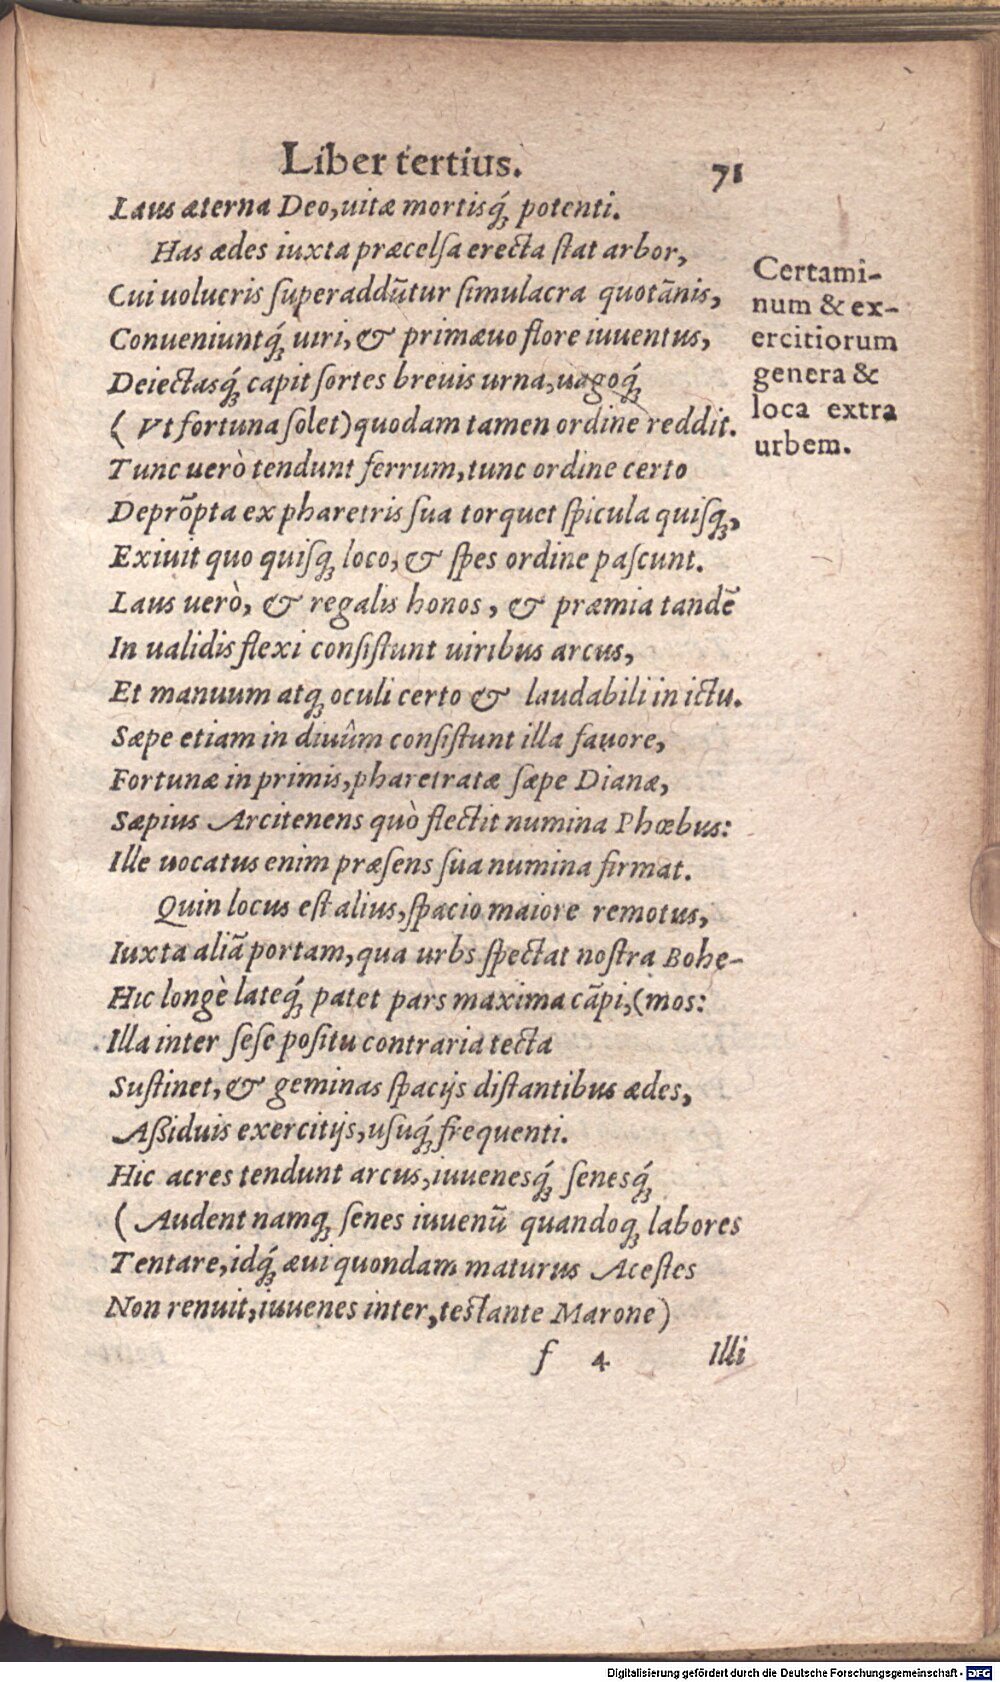 Liber tertius. 71
Laus æterna Deo, uitæ mortisq́ꝫ potenti.
Has ædes iuxta præcelſa erecta ſtat arbor,
Cui uolucris ſuperaddūtur ſimulacra quotānis,
Conueniuntq́ꝫ uiri, & primæuo flore iuuentus,
Deiectasq́ꝫ capit ſortes breuis urna, uagoq́ꝫ
(Vt fortuna ſolet) quodam tamen ordine reddit.
Tunc uerò tendunt ferrum, tunc ordine certo
Deprōpta ex pharetris ſua torquet ſpicula quiſqꝫ,
Exiuit quo quiſqꝫ loco, & ſpes ordine paſcunt.
Laus uerò, & regalis honos, & præmia tandē
In ualidis flexi conſiſtunt uiribus arcus,
Et manuum atqꝫ oculi certo & laudabili in ictu.
Sæpe etiam in diuûm conſiſtunt illa fauore,
Fortunæ in primis, pharetratæ ſæpe Dianæ,
Sæpius Arcitenens quò flectit numina Phœbus:
Ille uocatus enim præſens ſua numina firmat.
Quin locus eſt alius, ſpacio maiore remotus,
Iuxta aliā portam, qua urbs ſpectat noſtra Bohe-
Hic longè lateq́ꝫ patet pars maxima cāpi, (mos:
Illa inter ſeſe poſitu contraria tecta
Suſtinet, & geminas ſpacijs diſtantibus ædes,
Aßiduis exercitijs, uſuq́ꝫ frequenti.
Hic acres tendunt arcus, iuuenesq́ꝫ ſenesq́ꝫ
(Audent namqꝫ ſenes iuuenū quandoqꝫ labores
Tentare, idq́ꝫ æui quondam maturus Aceſtes
Non renuit, iuuenes inter, teſtante Marone)
f 4 Illi
Certami-
num & ex-
ercitiorum
genera &
loca extra
urbem.
Digitalisierung gefördert durch die Deutsche Forschungsgemeinschaft - DFG